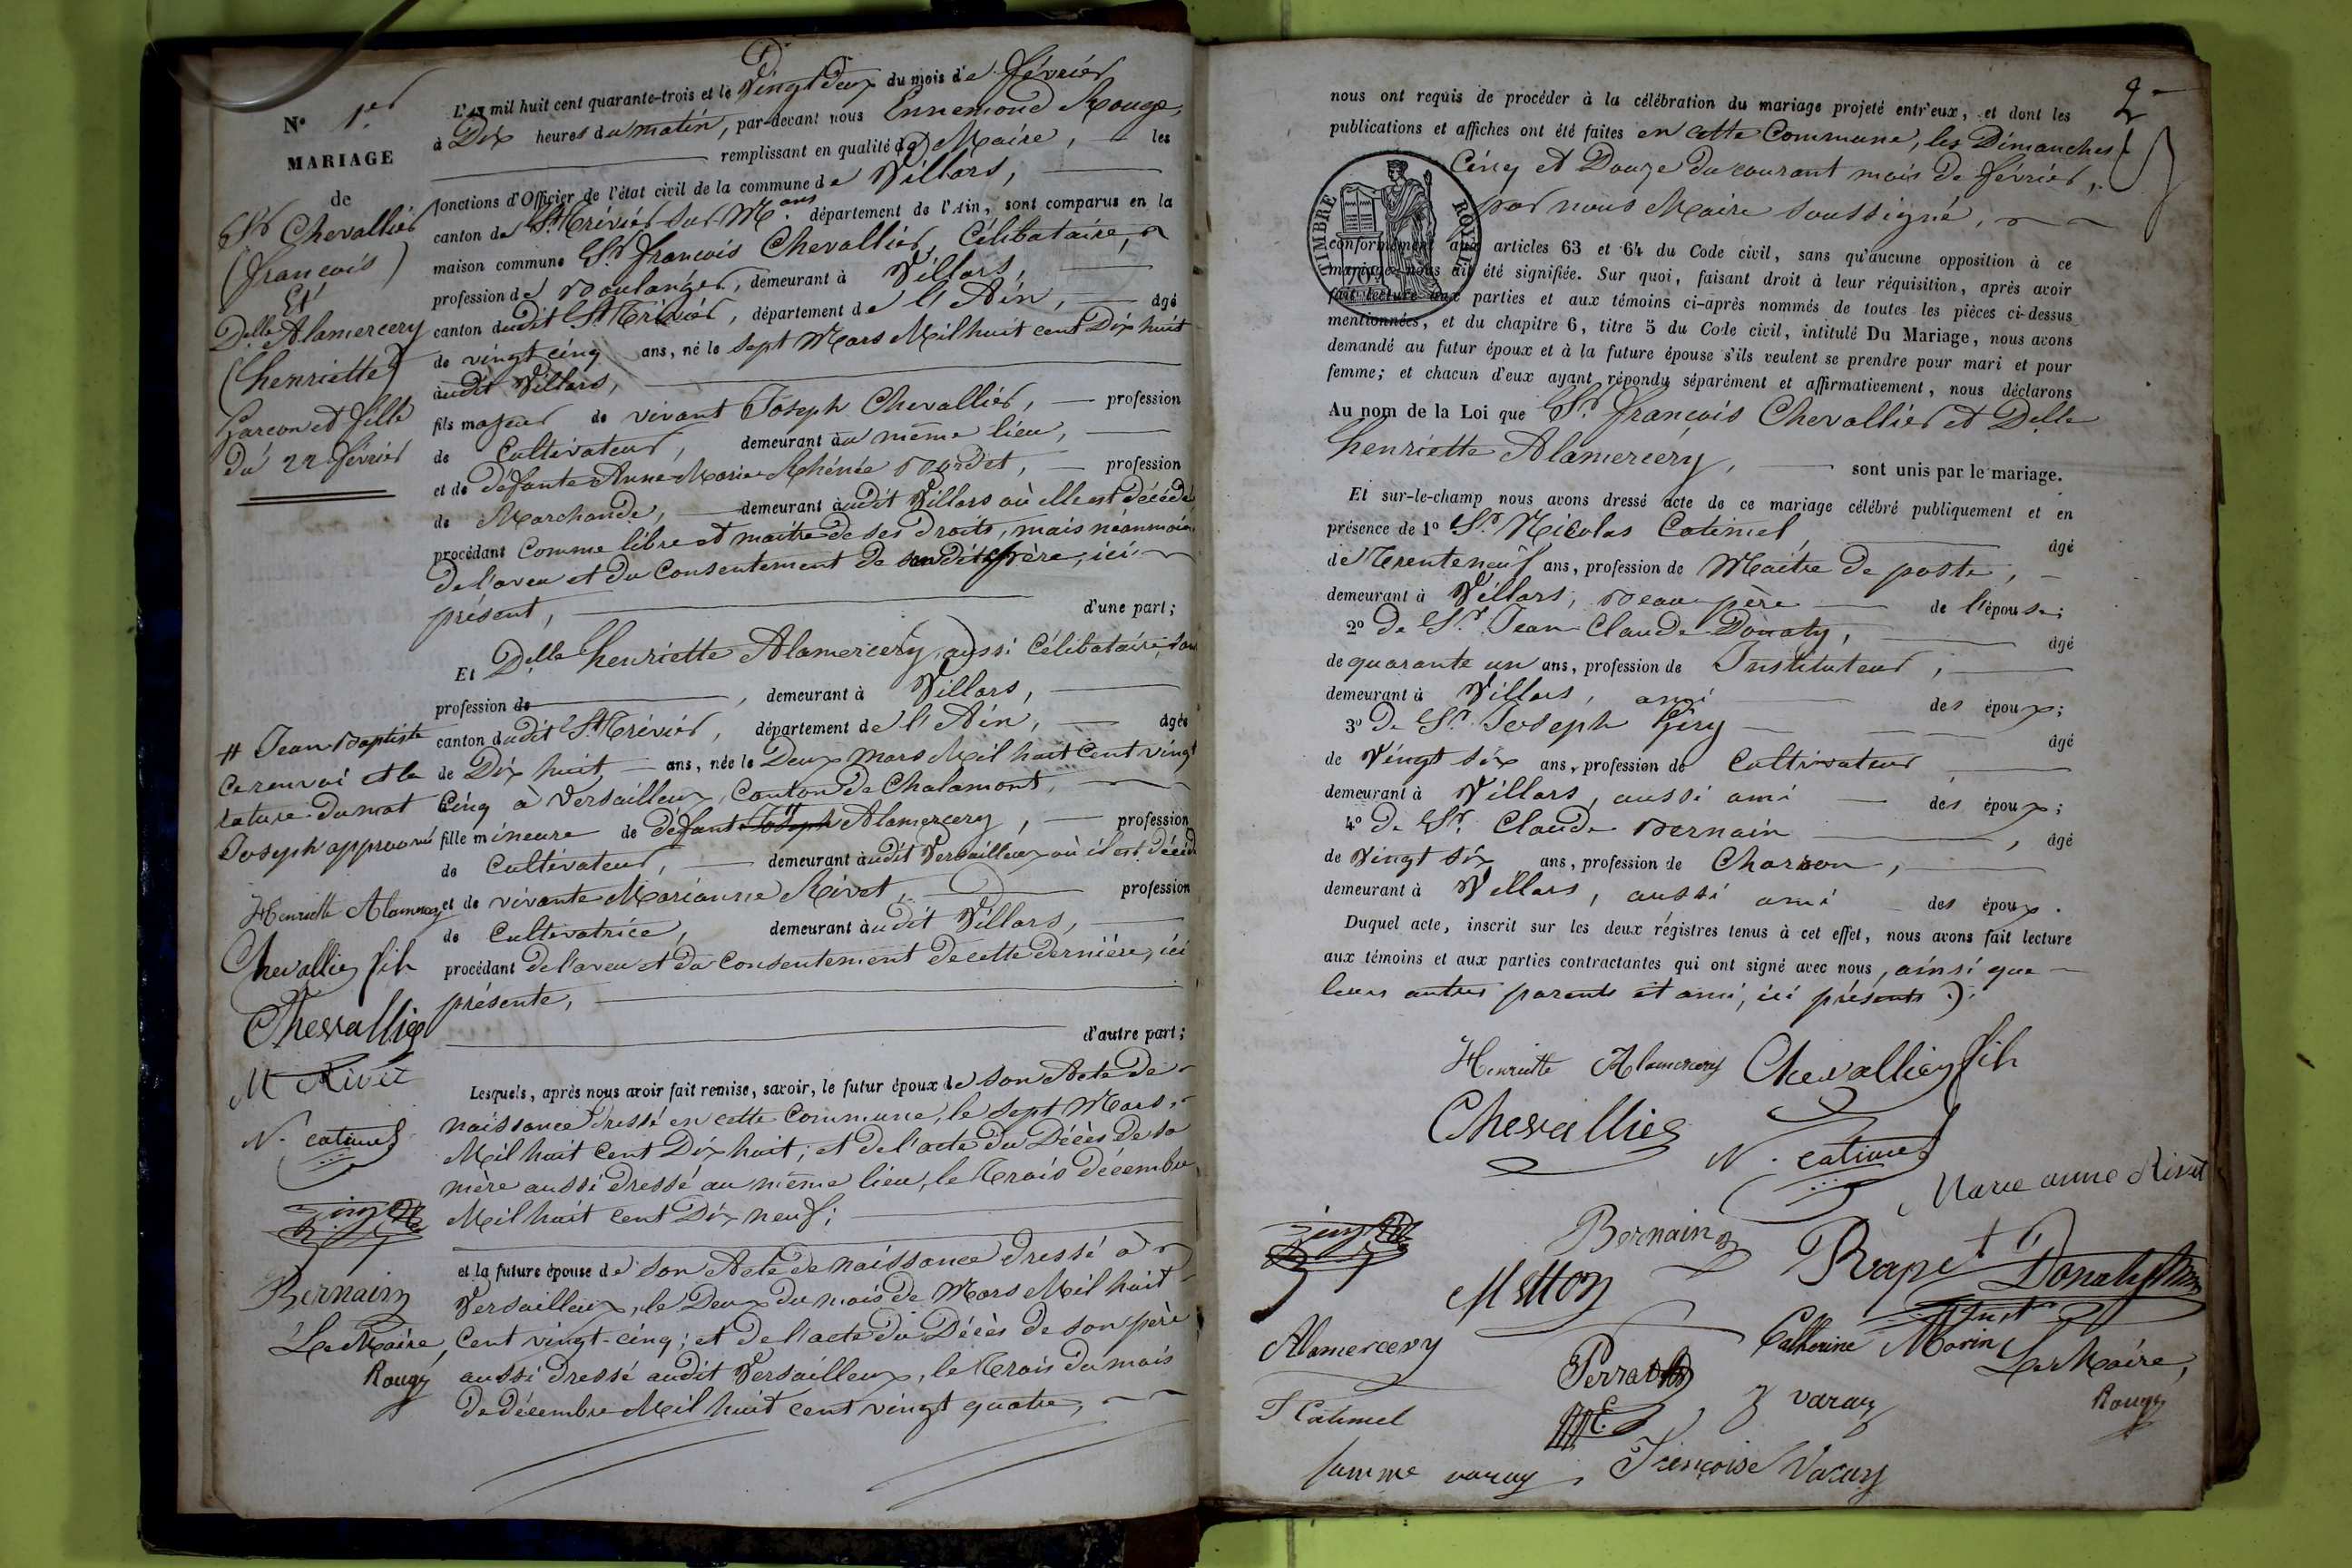 N.o 1.er
MARIAGE
de
S.r Chevallier
(françois)
Et
D.elle Alamercery
(henriette)
Garçon et fille
Du 22 février
L'an mil huit cent quarante-trois et le Vingt Deux du mois de février
à Dix heures du matin, par-devant nous Ennemond Rouge,
remplissant en qualité de Maire, les
fonctions d'Officier de l'état civil de la commune de Villars,
canton de S.t Trivier sur M.ans département de l'Ain, sont comparus en la
maison commune S.r françois Chevallier, Célibataire,
profession de Boulanger, demeurant à Villars,
canton dudit S.t Trivier, département de l'Ain, âgé
de vingt cinq ans, né le sept Mars Mil huit cent Dix huit
audit Villars,
fils majeur de vivant Joseph Chevallier, profession
de Cultivateur, demeurant au même lieu,
et de défunte Anne Marie Bourdet, profession
de Marchande, demeurant audit Villars où elle est décédée
procédant Comme libre et maitre de ses Droits, mais néanmoins
de l'aveu et du Consentement de son dit père, ici
présent, d'une part;
Et D.elle henriette Alamercery, aussi Célibataire, sans
profession de , demeurant à Villars,
canton dudit S.t Trivier, département de l'Ain, âgée
de Dix huit ans, née le Deux Mars Mil huit Cent vingt
Cinq à Versailleux, Canton de Chalamont,
fille mineure de défunt Joseph # Alamercery, profession
de Cultivateur, demeurant audit Versailleux où il est décédé
et de vivante Marianne Rivet, profession
de Cultivatrice, demeurant audit Villars,
procédant de l'aveu et du Consentement de cette dernière, ici
présente,
d'autre part;
# Jean Baptiste
Ce renvoi et la
rature du mot
Joseph approuvés
Henriette Alamercery
Chevallier fils
Chevallier
M Rivet
N. catimel
Bernain
Le Maire,
Rouge
Lesquels, après nous avoir fait remise, savoir, le futur époux de son Acte de
naissance dressé en cette Commune, le sept Mars
Mil huit Cent Dix huit; et de l'acte du Décès de sa
mère aussi dressé au même lieu, le Trois décembre
Mil huit Cent Dix neuf;
et la future épouse de son Acte de naissance dressé à
Versailleux, le Deux du mois de Mars Mil huit
Cent vingt-cinq; et de l'acte du Décès de son père
aussi dressé audit Versailleux, le Trois du mois
de décembre Mil huit cent vingt quatre,
2
nous ont requis de procéder à la célébration du mariage projeté entr'eux, et dont les
publications et affiches ont été faites en cette Commune, les Dimanches
Cinq et Douze du courant mois de février,
par nous Maire soussigné,
TIMBRE ROYAL
conformément aux articles 63 et 64 du Code civil, sans qu'aucune opposition à ce
mariage nous ait été signifiée. Sur quoi, faisant droit à leur réquisition, après avoir
fait lecture aux parties et aux témoins ci-après nommés de toutes les pièces ci-dessus
mentionnées, et du chapitre 6, titre 5 du Code civil, intitulé Du Mariage, nous avons
demandé au futur époux et à la future épouse s'ils veulent se prendre pour mari et pour
femme; et chacun d'eux ayant répondu séparément et affirmativement, nous déclarons
Au nom de la Loi que S.r françois Chevallier et D.elle
henriette Alamercery, sont unis par le mariage.
Et sur-le-champ nous avons dressé acte de ce mariage célébré publiquement et en
présence de 1º S.r Nicolas Catimel, âgé
de Trente neuf ans, profession de Maitre de poste,
demeurant à Villars, Beau père de l'épouse;
2º De S.r Jean Claude Donaty, âgé
de quarante un ans, profession de Instituteur,
demeurant à Villars, ami des époux;
3º De S.r Joseph Giry âgé
de Vingt six ans, profession de Cultivateur
demeurant à Villars, aussi ami des époux;
4º De S.r Claude Bernain, âgé
de Vingt six ans, profession de Charron,
demeurant à Villars, aussi ami des époux.
Duquel acte, inscrit sur les deux régistres tenus à cet effet, nous avons fait lecture
aux témoins et aux parties contractantes qui ont signé avec nous, ainsi que
leurs autres parents et ami, ici présents.
Henriette Alamercery Chevallier fils
Chevallier
N. catimel
Marie anne Rivet
Bernain
Rapet
Donaty
Alamercery
Catherine Morin
Le Maire,
Rouge
varay
varay
Françoise Varay